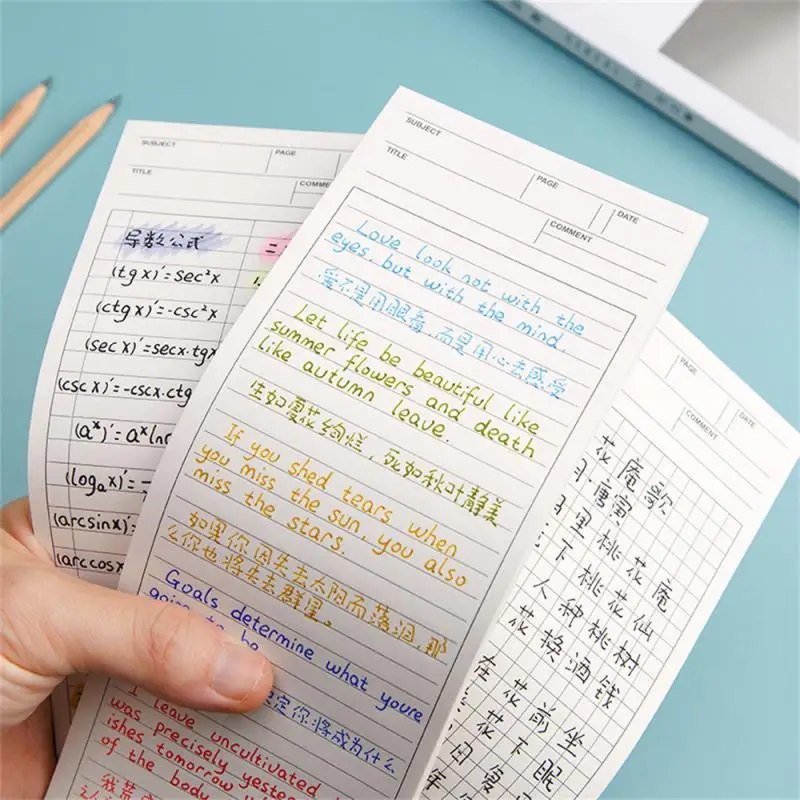 SUBJECT
PAGE
TITLE
COMME
导数公式
二
(tgx)'=sec²x
(ctgx)'=-csc²x
(secx)'=secx·tgx
(cscx)'=-cscx·ctg
(aˣ)'=aˣln
(logₐx)'=
(arcsinx)'=
(arccosx
SUBJECT
PAGE
DATE
TITLE
COMMENT
Love look not with the
eyes, but with the mind.
爱不是用眼看,而是用心去感受
Let life be beautiful like
summer flowers and death
like autumn leave.
生如夏花绚烂,死如秋叶静美
If you shed tears when
you miss the sun, you also
miss the stars.
如果你因失去太阳而落泪,那
么你也将失去群星。
Goals determine what youre
going to be
定你将成为什么
I leave uncultivated
was precisely yester
ishes tomorrow
of the body
我荒
PAGE
DATE
COMMENT
花庵歌
唐寅
里桃花庵
下桃花仙
人种桃树
花换酒钱
在花前坐
花下眠
日复
年